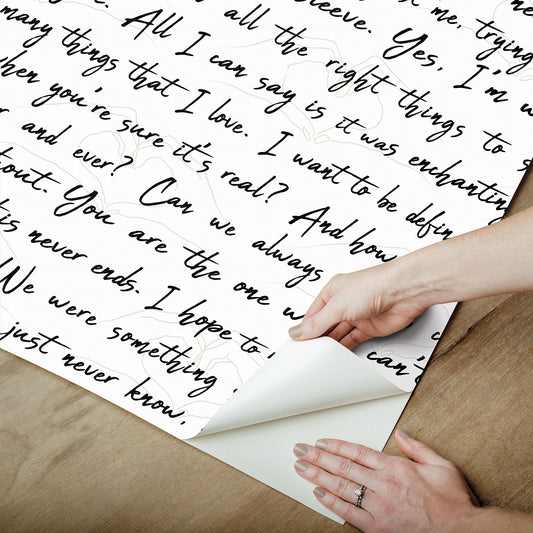 ne
me, trying
sleeve. Yes, I'm w
all the right things to s
All I can say is it was enchanting
many things that I love. I want to be defin
when you're sure it's real? And how
and ever? Can we always
out. You are the one w
is never ends. I hope to
can't
We were something
just never know,